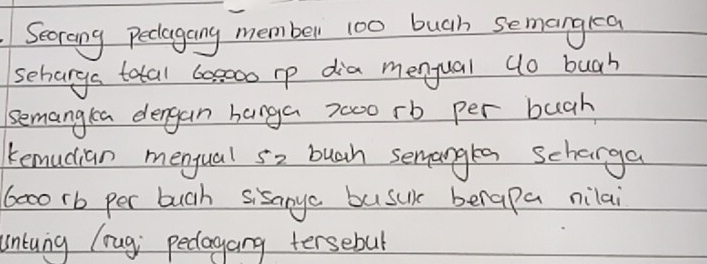 Seorang pedagang membeli 100 buah semangka
seharga total 600000 rp dia menjual 40 buah
semangka dengan harga 7000 rb per buah
kemudian menjual 52 buah semangka seharga
6000 rb per buah sisanya busuk berapa nilai
untung / rugi pedagang tersebut